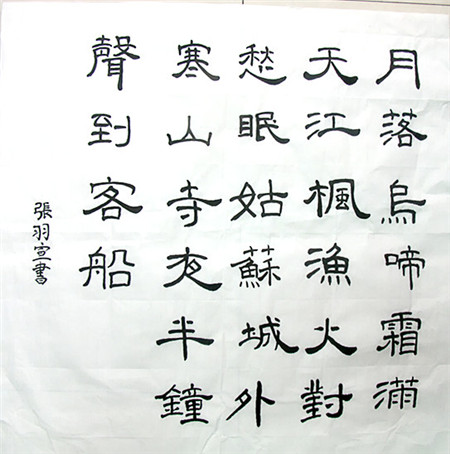 月落烏啼霜滿
天江楓漁火對
愁眠姑蘇城外
寒山寺夜半鐘
聲到客船
張羽宣書